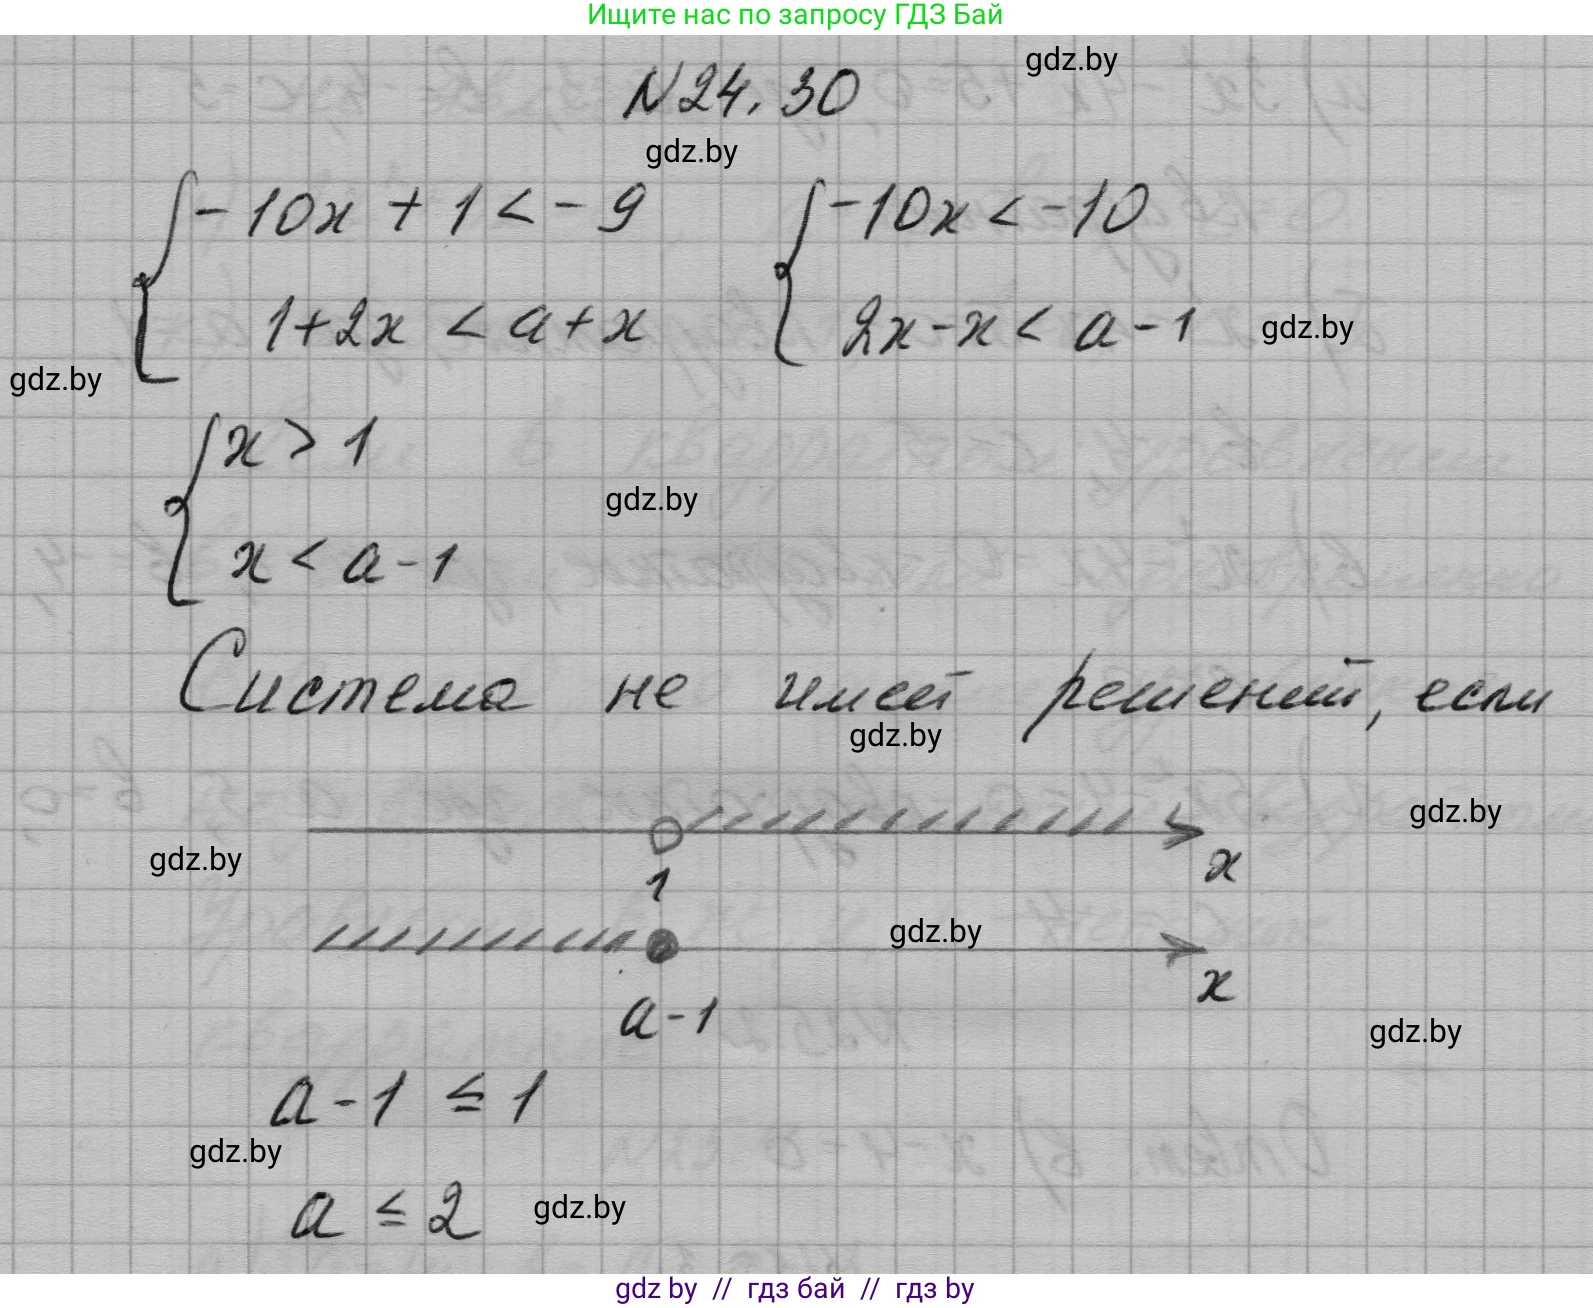 Ищите нас по запросу ГДЗ Бай
gdz.by
N24.30
gdz.by
{ -10x + 1 < -9 { -10x < -10
1+2x < a+x 2x-x < a-1 gdz.by
gdz.by
{ x > 1
gdz.by
x < a-1
Система не имеет решений, если
gdz.by
gdz.by
gdz.by
x
1
gdz.by
x
a-1
gdz.by
a-1 ≤ 1
gdz.by
a ≤ 2 gdz.by
gdz by // гдз бай // гдз by